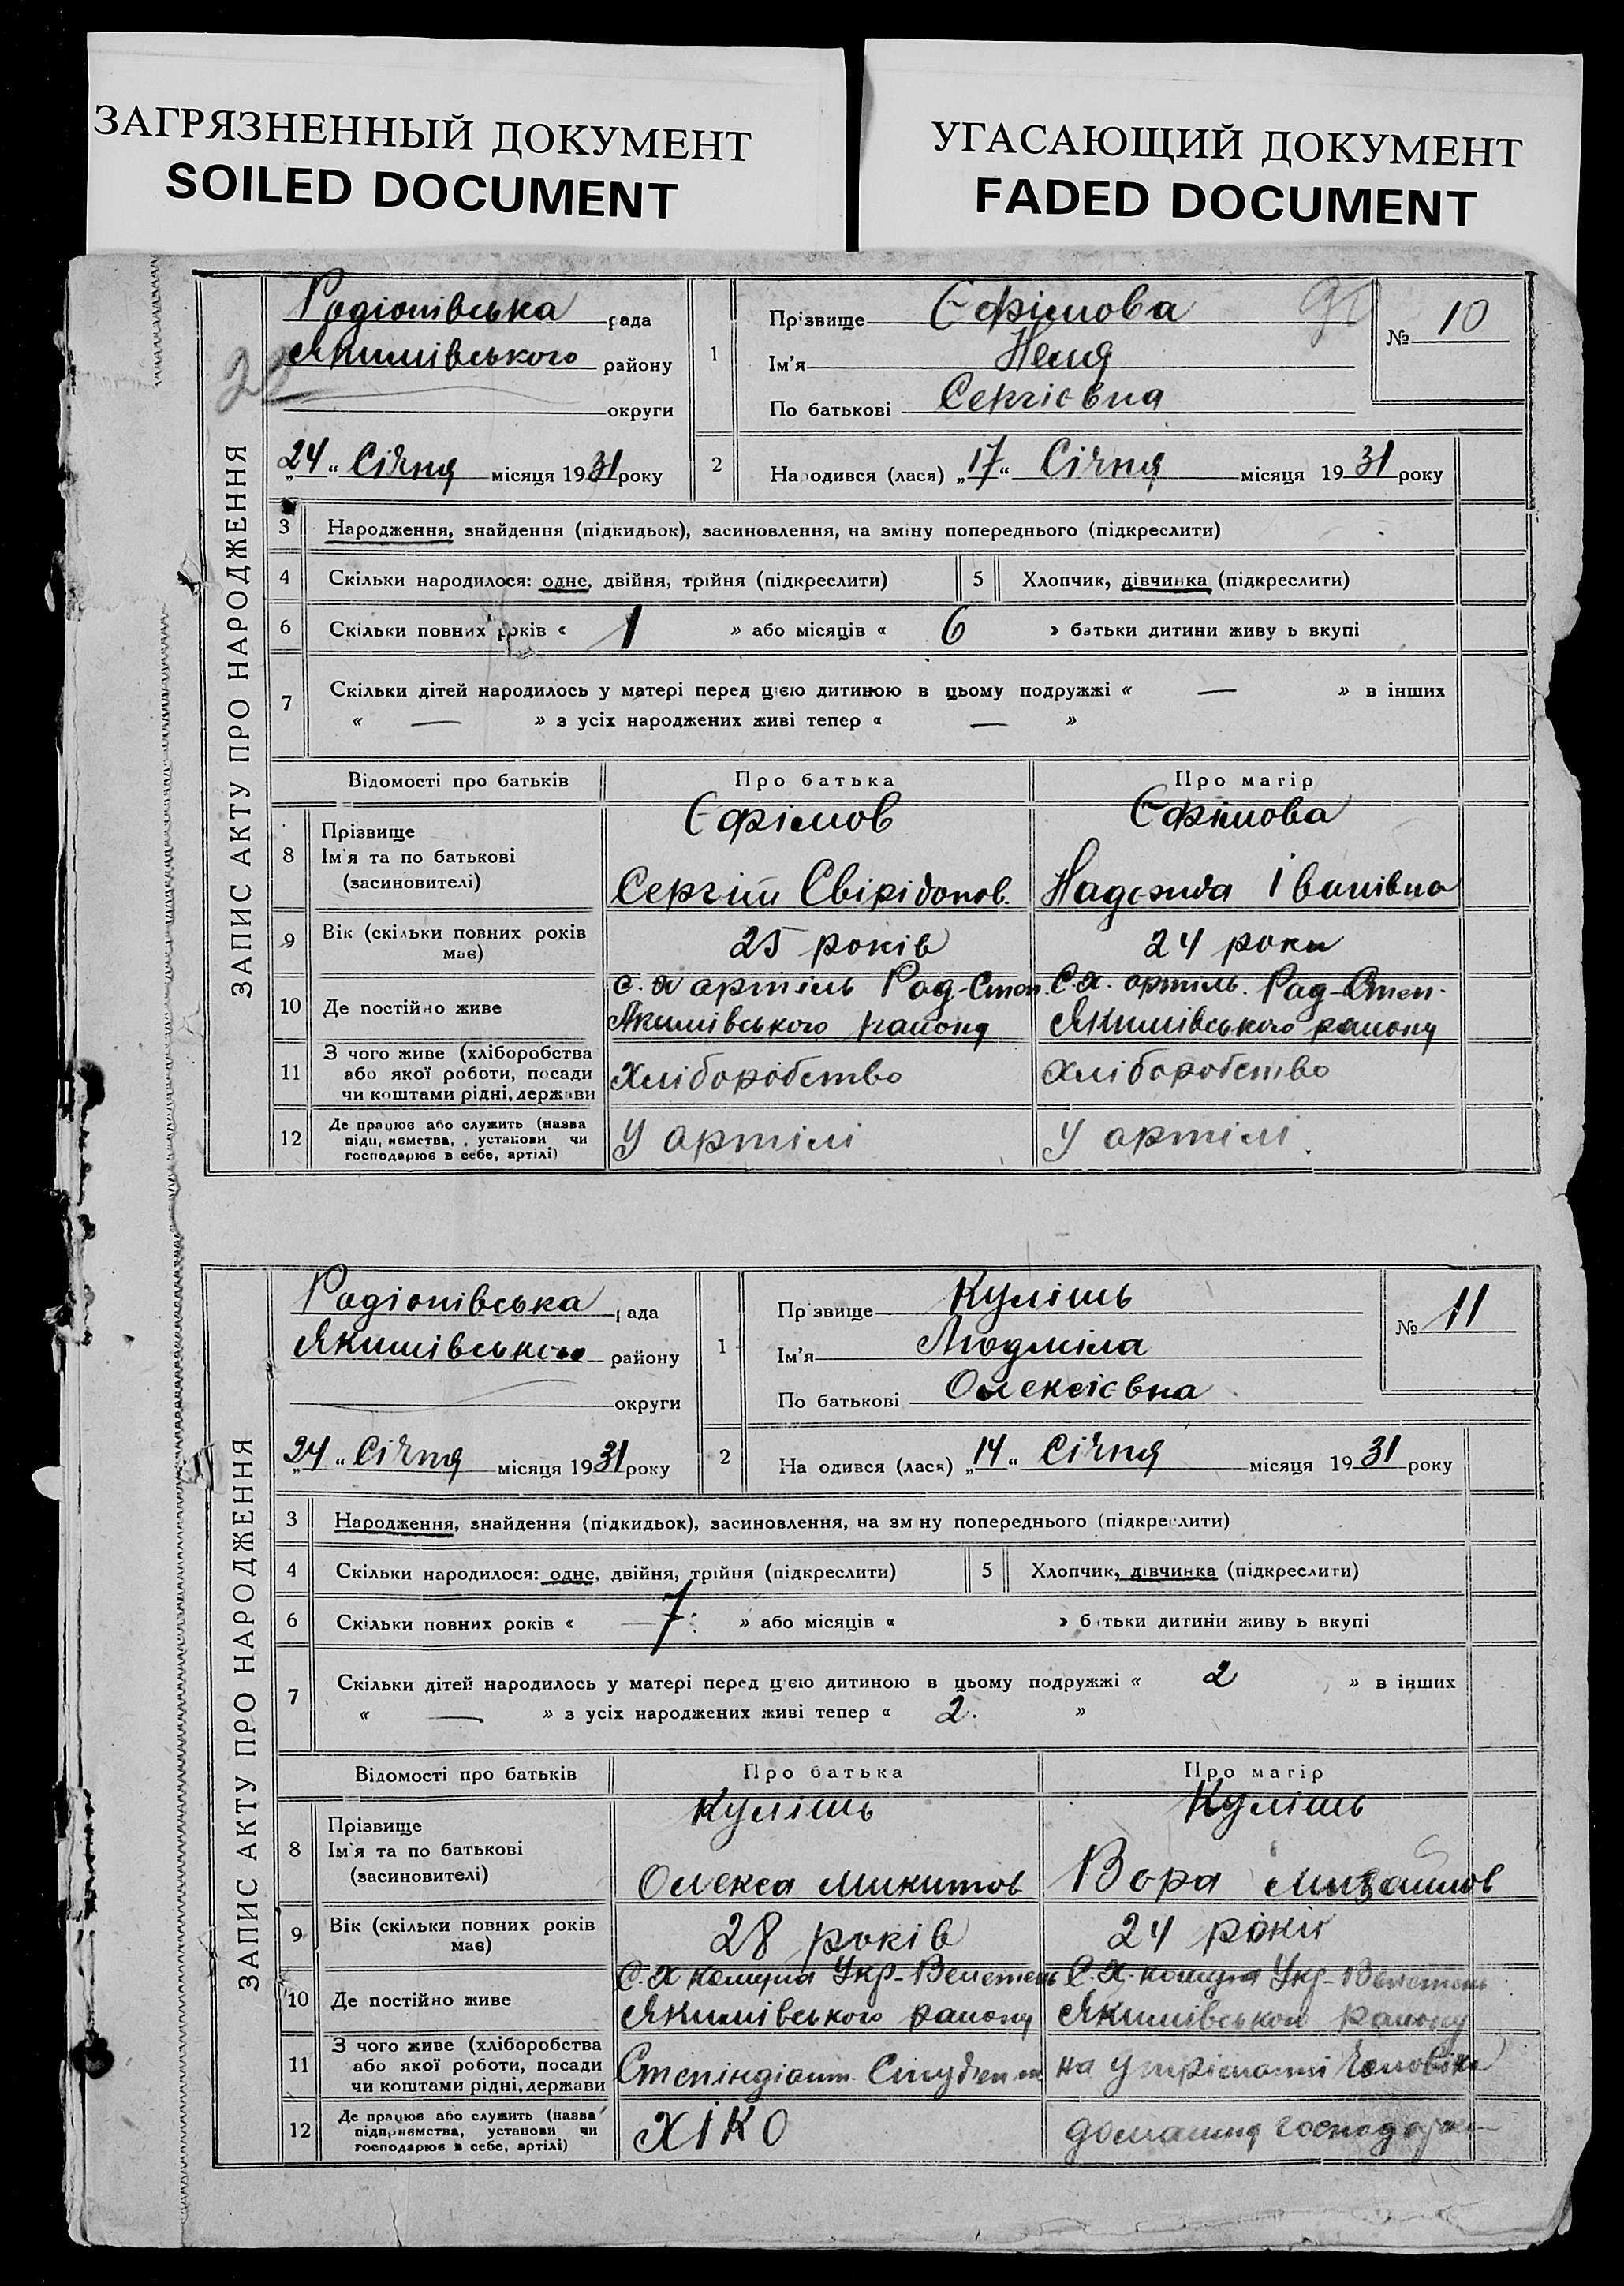 ЗАГРЯЗНЕННЫЙ ДОКУМЕНТ
SOILED DOCUMENT
УГАСАЮЩИЙ ДОКУМЕНТ
FADED DOCUMENT
ЗАПИС АКТУ ПРО НАРОДЖЕННЯ
Родіонівська рада
Якимівського району
округи
„24“ Січня місяця 1931 року
1 Прізвище Єфімова
Ім'я Неля
По батькові Сергієвна
№ 10
2 Народився (лася) „17“ Січня місяця 1931 року
3 Народження, знайдення (підкидьок), засиновлення, на зміну попереднього (підкреслити)
4 Скільки народилося: одне, двійня, трійня (підкреслити) 5 Хлопчик, дівчинка (підкреслити)
6 Скільки повних років « 1 » або місяців « 6 » батьки дитини живу ь вкупі
7 Скільки дітей народилось у матері перед цією дитиною в цьому подружжі « — » в інших
« — » з усіх народжених живі тепер « — »
Відомості про батьків Про батька Про матір
8 Прізвище Єфімов Єфімова
Ім'я та по батькові
(засиновителі) Сергій Свірідонов. Надежда Іванівна
9 Вік (скільки повних років має) 25 років 24 роки
10 Де постійно живе с. х артіль Рад-Степ. С.х. артіль. Рад-Степ.
Якимівського району Якимівського району
11 З чого живе (хліборобства
або якої роботи, посади
чи коштами рідні, держави Хліборобство Хліборобство
12 Де працює або служить (назва
підприємства, установи чи
господарює в себе, артілі) У артілі У артілі.
ЗАПИС АКТУ ПРО НАРОДЖЕННЯ
Родіонівська рада
Якимівського району
округи
„24“ Січня місяця 1931 року
1 Пр звище Кулішь
Ім'я Людміла
По батькові Олексієвна
№ 11
2 На одився (лася) „14“ Січня місяця 1931 року
3 Народження, знайдення (підкидьок), засиновлення, на зм ну попереднього (підкреслити)
4 Скільки народилося: одне, двійня, трійня (підкреслити) 5 Хлопчик, дівчинка (підкреслити)
6 Скільки повних років « 7 » або місяців « » б тьки дитини живу ь вкупі
7 Скільки дітей народилось у матері перед цією дитиною в цьому подружжі « 2 » в інших
« — » з усіх народжених живі тепер « 2. »
Відомості про батьків Про батька Про матір
8 Прізвище Кулішь Кулішь
Ім'я та по батькові
(засиновителі) Олекса Микитов Вєра Михайлов
9 Вік (скільки повних років має) 28 років 24 роки
10 Де постійно живе С.х комуна Укр- С.х. комуна Укр-
Якимівського району Якимівського району
11 З чого живе (хліборобства
або якої роботи, посади
чи коштами рідні, держави Стипіндіант. на утріманні Чоловіка
12 Де працює або служить (назва
підприємства, установи чи
господарює в себе, артілі) ХІКО домашня